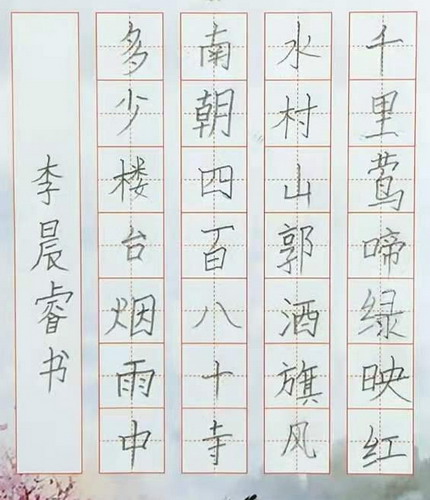 千里莺啼绿映红
水村山郭酒旗风
南朝四百八十寺
多少楼台烟雨中
李晨睿书